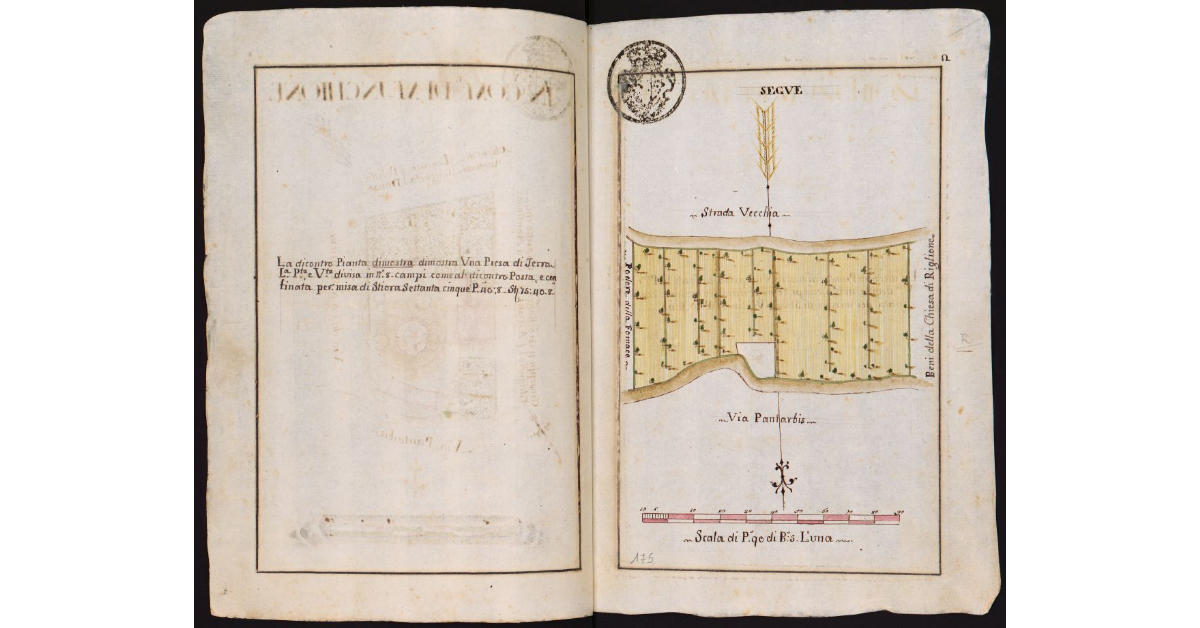 La dicontro Pianta dimostra dimostra Vna Piesa di Terra
L.ª P.ta e V.ta divisa in n.º 8. campi come al dicontro Posta, e con
finata per. misa di Stiora Settanta cinque P. 40: 8. St. 75: 40. 8.
Ω
SEGVE
Strada Vecchia
Podere della Fornace
Beni della Chiesa di Riglione
Via Pantarbis
10 5 10 20 30 40 50 60 70 80 90
Scala di P. 90 di B. 5. L'una
175